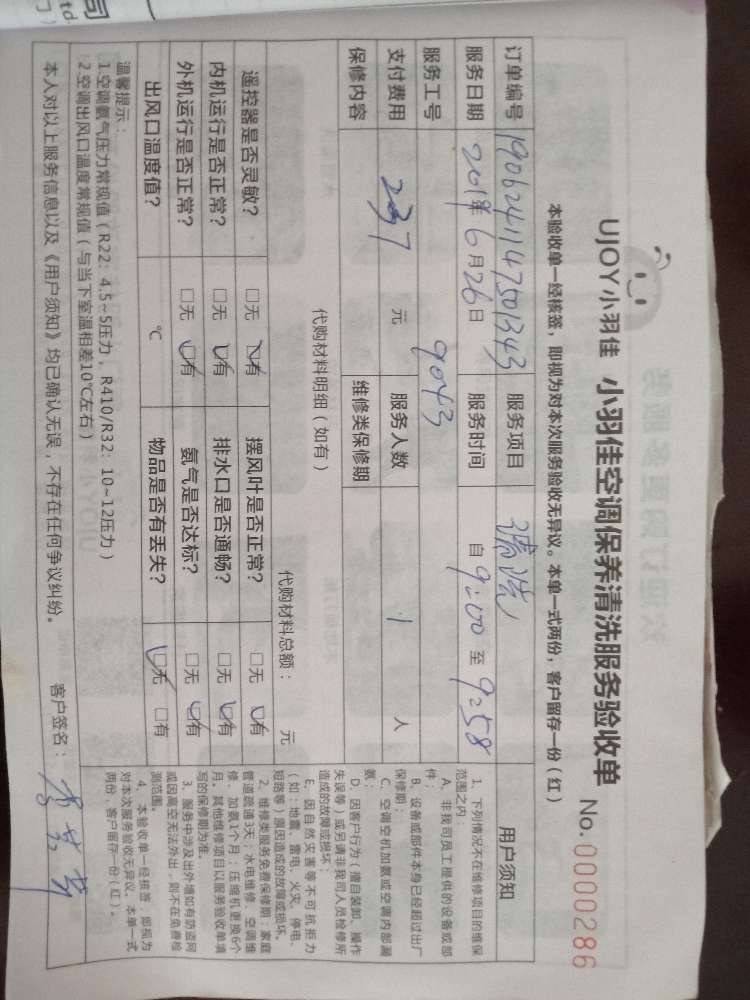 司
td
UJOY小羽佳 小羽佳空调保养清洗服务验收单 No.0000286
本验收单一经核签，即视为对本次服务验收无异议。本单一式两份，客户留存一份（红）
订单编号 19062411475013343 服务项目 清洗
服务日期 2019年6月26日 服务时间 自 9:00 至 9:58
服务工号 9043
支付费用 元 服务人数 1 人
保修内容 维修类保修期
代购材料明细（如有） 代购材料总额： 元
遥控器是否灵敏？ □无 □有 摆风叶是否正常？ □无 □有
内机运行是否正常？ □无 □有 排水口是否通畅？ □无 □有
外机运行是否正常？ □无 □有 氨气是否达标？ □无 □有
出风口温度值？ ℃ 物品是否有丢失？ □无 □有
温馨提示：
1.空调氨气压力常规值（R22：4.5~5压力，R410/R32：10~12压力）
2.空调出风口温度常规值（与当下室温相差10℃左右）
本人对以上服务信息以及《用户须知》均已确认无误，不存在任何争议纠纷。 客户签名：
用户须知
1、下列情况不在维修项目的维保
范围之内：
A、非我司员工提供的设备或部
件；
B、设备或部件本身已经超过出厂
保修期；
C、空调空机加氨或空调内部漏
氨；
D、因客户行为（擅自装卸、操作
失误等）或另请非我司人员检修所
造成的故障或损坏；
E、因自然灾害等不可抗拒力
（如：地震、雷电、火灾、停电、
短路等）原因造成的故障或损坏。
2、维修类服务免费保修期：家庭
管道疏通3天；水电维修、空调维
修、加氨1个月；压缩机更换6个
月。其他维修项目以服务验收单填
写的保修期为准。
3、服务中涉及出外墙如有防盗网
或因高空无法外出，则不在免费检
测范围。
4、本验收单一经核签，即视为
对本次服务验收无异议，本单一式
两份，客户留存一份（红）。